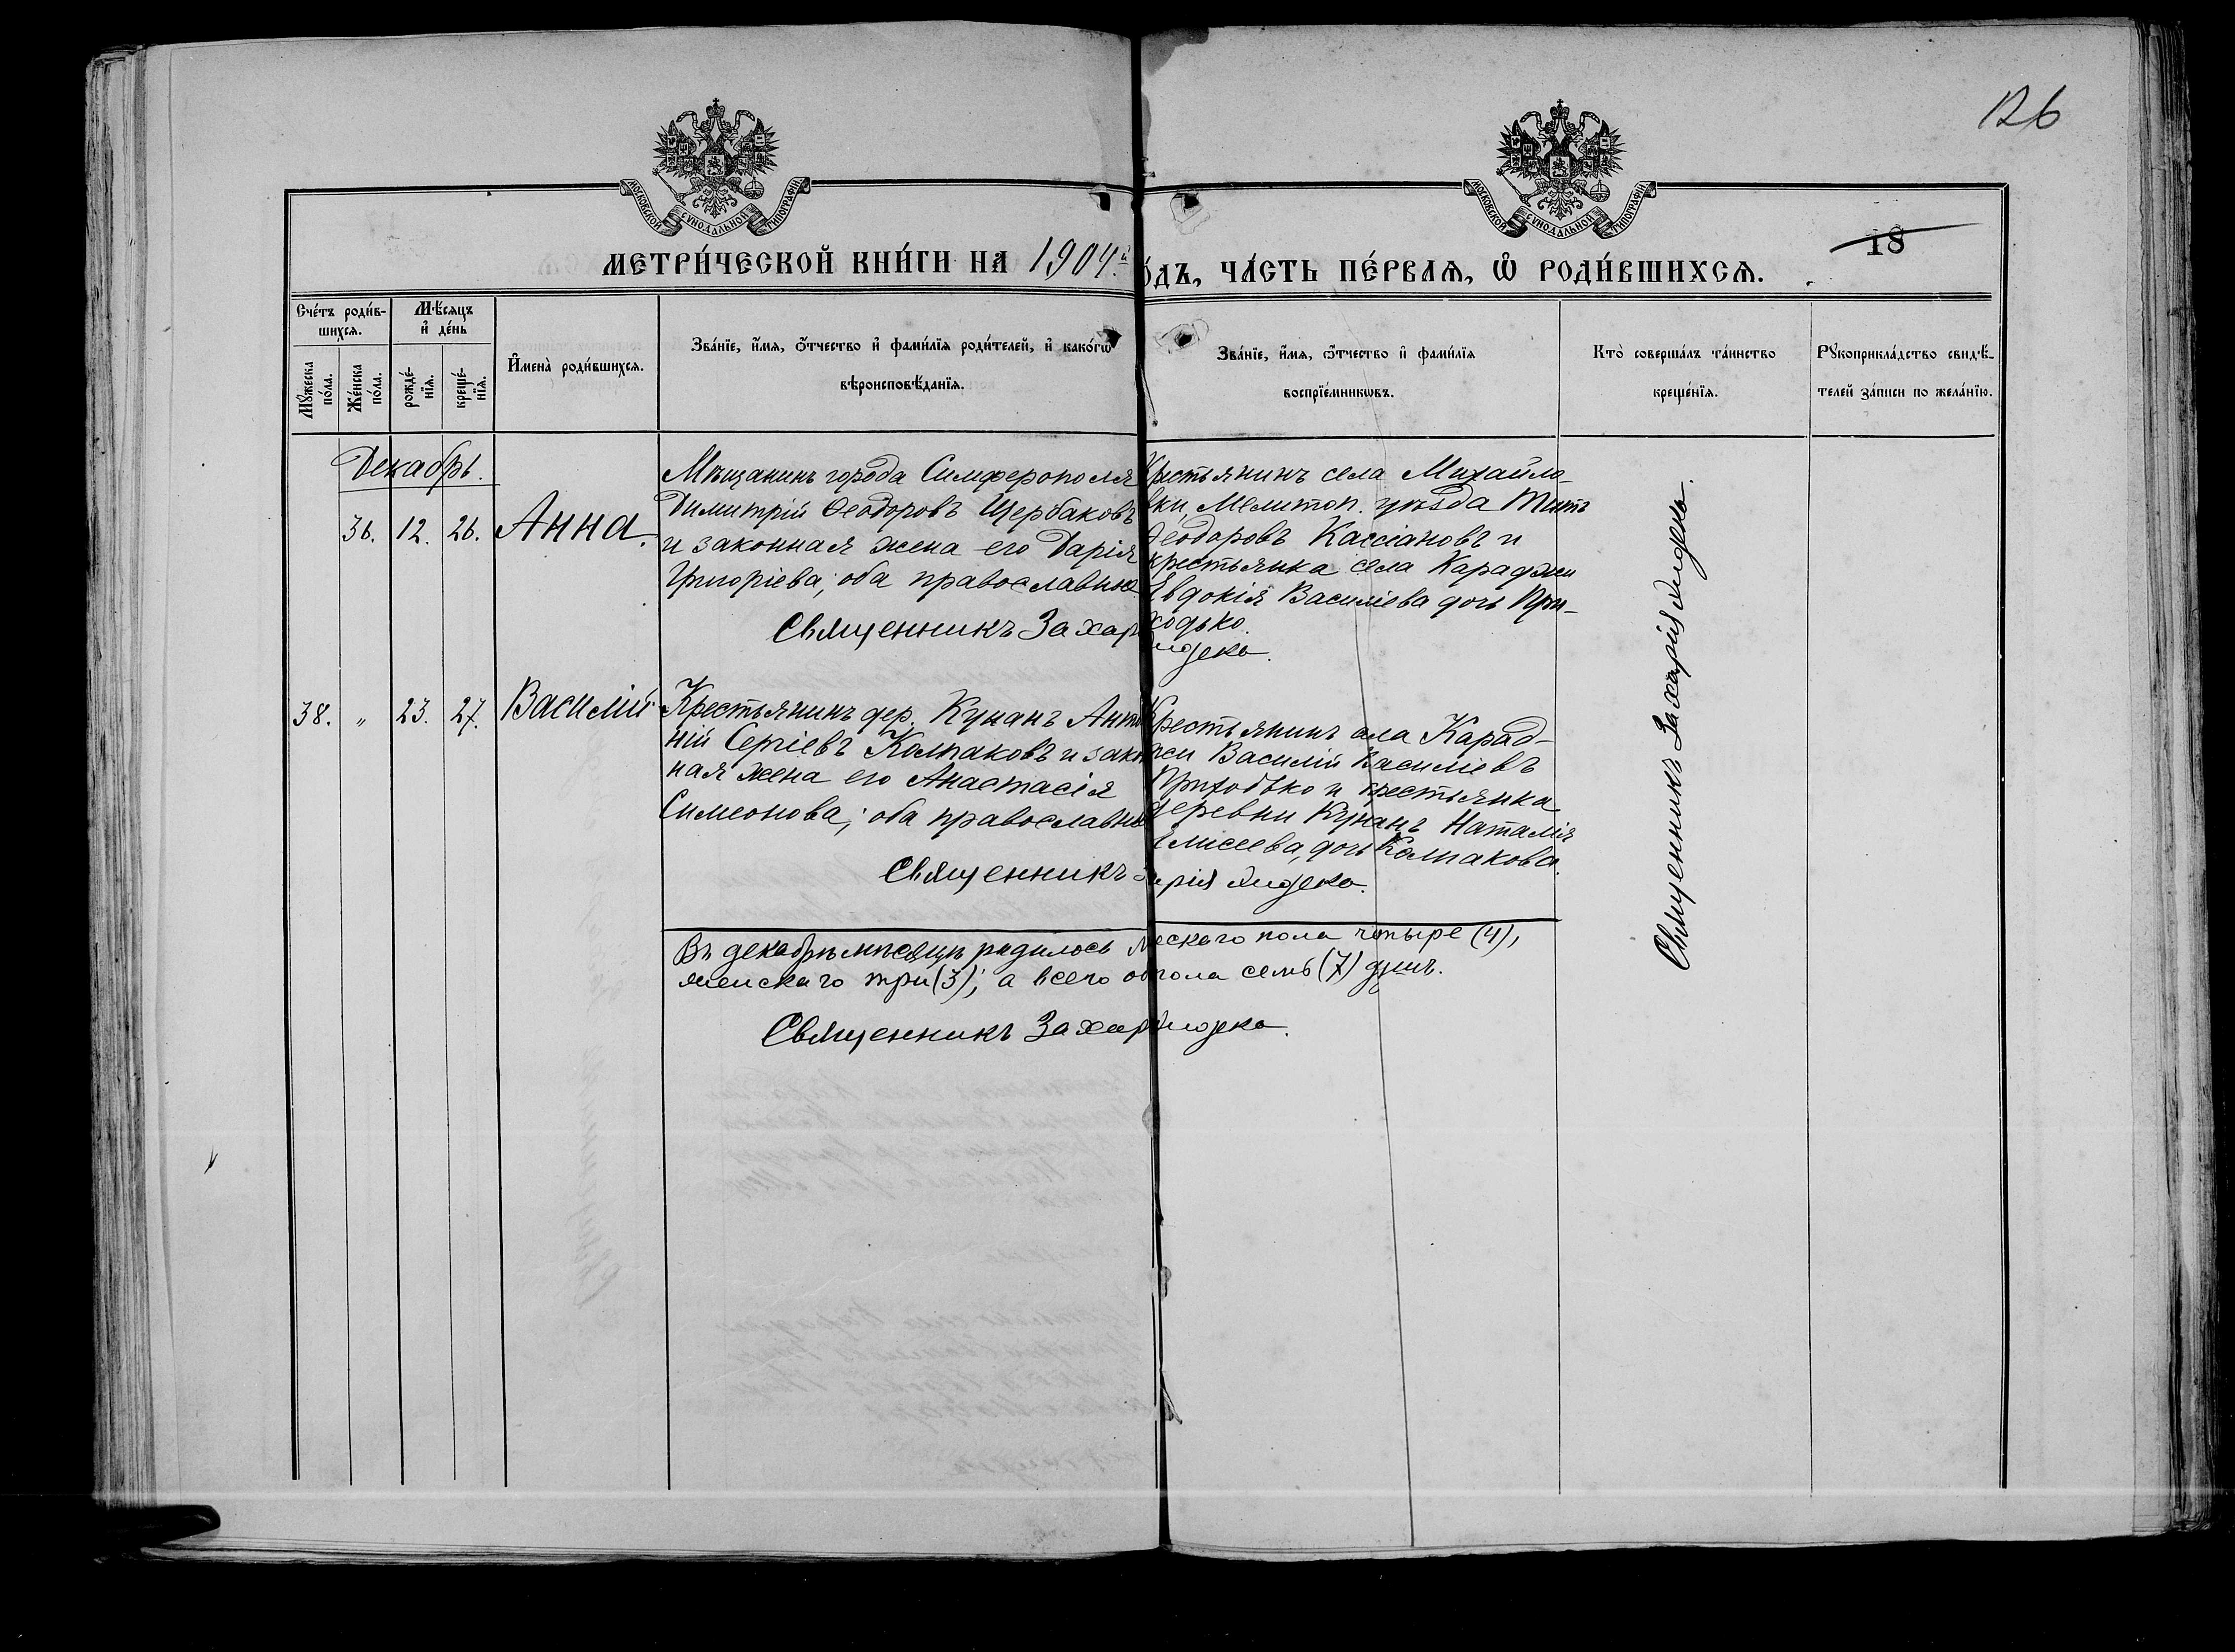 126
МОСКОВСКОЙ СУНОДАЛЬНОЙ ТИПОГРАФІИ
МОСКОВСКОЙ СУНОДАЛЬНОЙ ТИПОГРАФІИ
18
МЕТРИ́ЧЕСКОЙ КНИ́ГИ НА 1904.й
ОДЪ, ЧА́СТЬ ПЕ́РВАѦ, Ѿ РОДИ́ВШИХСѦ.
Сче́тъ роди́в-
шихсѧ.
Мꙋжеска по́ла.
Же́нска по́ла.
Мѣ́сѧцъ
и҆ де́нь
рожде́-
нїѧ.
креще́-
нїѧ.
И҆мена̀ роди́вшихсѧ.
Зва́нїе, и҆́мѧ, ѻ҆́тчество и҆ фами́лїѧ роди́телей, и҆ како́гѡ
вѣроисповѣ́данїѧ.
Зва́нїе, и҆́мѧ, ѻ҆́тчество и҆ фами́лїѧ
воспрїе́мникѡвъ.
Кто̀ соверша́лъ та́инство
креще́нїѧ.
Рꙋкоприкла́дство свидѣ́-
телей за́писи по жела́нїю.
Декабрь.
36. 12. 26. Анна.
Мѣщанинъ города Симферополя
Димитрій Ѳеодоровъ Щербаковъ
и законная жена его Дарія
Григоріева; оба православные
Священникъ Захар
Крестьянинъ села Михайло-
вки, Мелитоп. уѣзда Титъ
Ѳеодоровъ Кассіановъ и
крестьянка села Караджи
Евдокія Василіева дочь При-
ходько.
38. " 23. 27. Василій
Крестьянинъ дер. Кунанъ Анто
ній Сергіевъ Колпаковъ и закон
ная жена его Анастасія
Симеонова; оба православны
Священникъ
Крестьянинъ села Карад-
жи Василій Василіевъ
Приходько и крестьянка
деревни Кунанъ Наталія
Елисеева, дочь Колпакова.
рія
Въ декабрѣ мѣсяцѣ родилось мескаго пола четыре (4),
женскаго три (3); а всего об пола семь (7) душъ.
Священникъ Захар
Священникъ Захарія